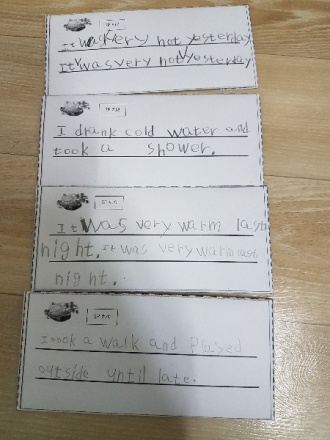 It was very hot yesterday
It was very hot yesterday
I drank cold water and
took a shower.
It was very warm last
night. It was very warm last
night.
I took a walk and Played
outside until late.